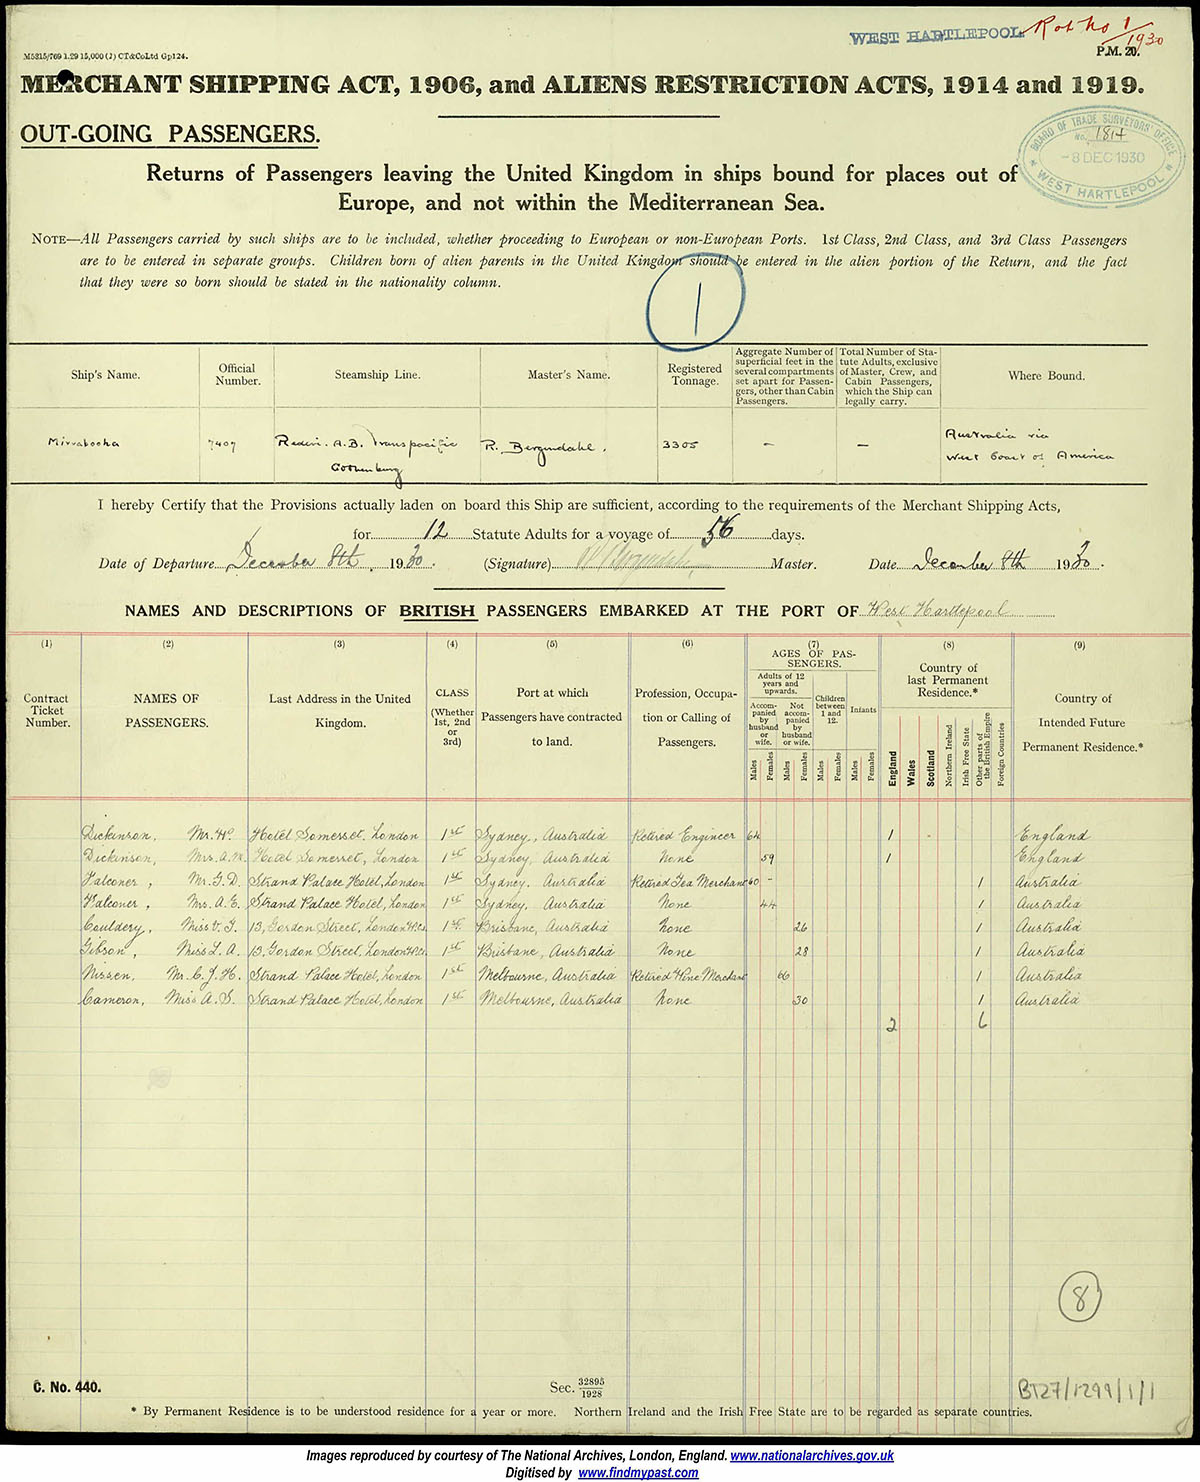 M5315/769 1.29 15,000 (J) CT&CoLtd Gp124.
WEST HARTLEPOOL. Rot No 1/1930
P.M. 20.
MERCHANT SHIPPING ACT, 1906, and ALIENS RESTRICTION ACTS, 1914 and 1919.
OUT-GOING PASSENGERS.
BOARD OF TRADE SURVEYORS' OFFICE
No. 1814
-8 DEC 1930
WEST HARTLEPOOL
Returns of Passengers leaving the United Kingdom in ships bound for places out of
Europe, and not within the Mediterranean Sea.
NOTE—All Passengers carried by such ships are to be included, whether proceeding to European or non-European Ports. 1st Class, 2nd Class, and 3rd Class Passengers
are to be entered in separate groups. Children born of alien parents in the United Kingdom should be entered in the alien portion of the Return, and the fact
that they were so born should be stated in the nationality column.
1
Ship's Name.
Official Number.
Steamship Line.
Master's Name.
Registered Tonnage.
Aggregate Number of superficial feet in the several compartments set apart for Passengers, other than Cabin Passengers.
Total Number of Statute Adults, exclusive of Master, Crew, and Cabin Passengers, which the Ship can legally carry.
Where Bound.
Mirrabooka 7407 Rederi. A.B. Transpacific Gothenburg R. Bergendahl. 3305 – – Australia via West Coast of America
I hereby Certify that the Provisions actually laden on board this Ship are sufficient, according to the requirements of the Merchant Shipping Acts,
for 12 Statute Adults for a voyage of 56 days.
Date of Departure December 8th, 1930. (Signature) R Bergendahl Master. Date December 8th 1930.
NAMES AND DESCRIPTIONS OF BRITISH PASSENGERS EMBARKED AT THE PORT OF West Hartlepool
(1) (2) (3) (4) (5) (6) (7) (8) (9)
Contract Ticket Number.
NAMES OF PASSENGERS.
Last Address in the United Kingdom.
CLASS (Whether 1st, 2nd or 3rd)
Port at which Passengers have contracted to land.
Profession, Occupation or Calling of Passengers.
AGES OF PASSENGERS.
Adults of 12 years and upwards.
Accompanied by husband or wife.
Not accompanied by husband or wife.
Children between 1 and 12.
Infants
Males Females Males Females Males Females Males Females
Country of last Permanent Residence.*
England Wales Scotland Northern Ireland Irish Free State Other parts of the British Empire Foreign Countries
Country of Intended Future Permanent Residence.*
Dickinson, Mr. W. Hotel Somerset, London 1st Sydney, Australia Retired Engineer 64 1 England
Dickinson, Mrs. A.M. Hotel Somerset, London 1st Sydney, Australia None 59 1 England
Falconer, Mr. G.D. Strand Palace Hotel, London 1st Sydney, Australia Retired Tea Merchant 60 – 1 Australia
Falconer, Mrs. A.E. Strand Palace Hotel, London 1st Sydney, Australia None 44 1 Australia
Couldery, Miss V.I. 13, Gordon Street, London W.C. 1st Brisbane, Australia None 26 1 Australia
Gibson, Miss L.A. 13, Gordon Street, London W.C. 1st Brisbane, Australia None 28 1 Australia
Nissen, Mr. C.J.H. Strand Palace Hotel, London 1st Melbourne, Australia Retired Wine Merchant 66 1 Australia
Cameron, Miss A.S. Strand Palace Hotel, London 1st Melbourne, Australia None 30 1 Australia
2 6
8
C. No. 440.
Sec. 32895/1928
BT27/1299/1/1
* By Permanent Residence is to be understood residence for a year or more. Northern Ireland and the Irish Free State are to be regarded as separate countries.
Images reproduced by courtesy of The National Archives, London, England. www.nationalarchives.gov.uk
Digitised by www.findmypast.com